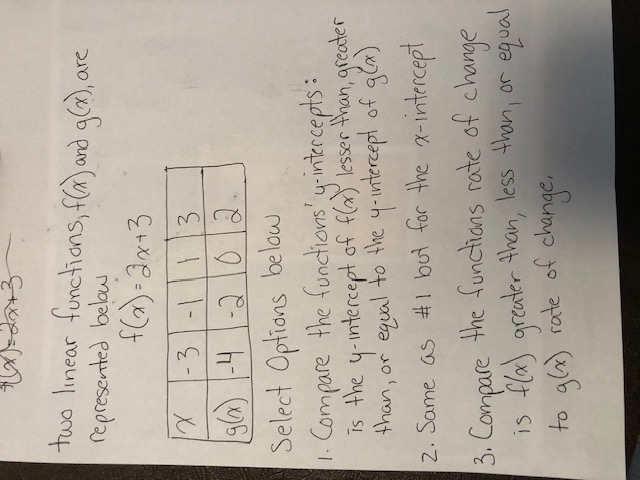 f(x)=2x+3
two linear functions, f(x) and g(x), are
represented below
f(x) = 2x+3
x -3 -1 1 3
g(x) -4 -2 0 2
Select Options below
1. Compare the functions' y-intercepts:
is the y-intercept of f(x) lesser than, greater
than, or equal to the y-intercept of g(x)
2. Same as #1 but for the x-intercept
3. Compare the functions rate of change
is f(x) greater than, less than, or equal
to g(x) rate of change.